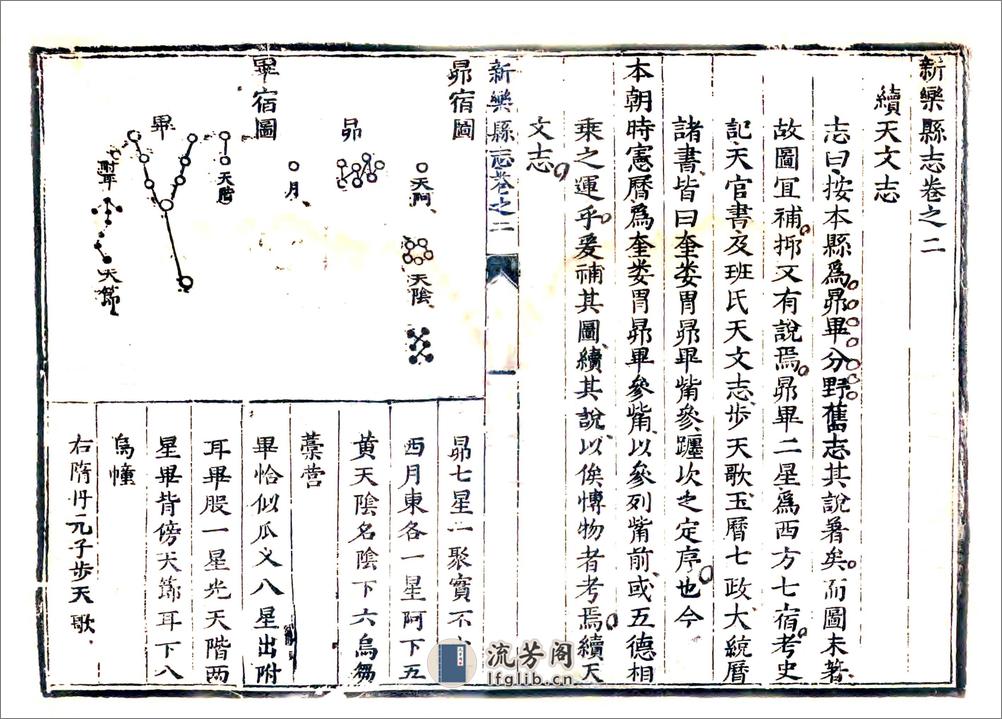 新樂縣志卷之二
續天文志
志曰按本縣爲昴畢分野舊志其說著矣而圖未著
故圖宜補抑又有說焉昴畢二星爲西方七宿考史
記天官書及班氏天文志步天歌玉曆七政大統曆
諸書皆曰奎娄胃昴畢觜參躔次之定序也今
本朝時憲曆爲奎娄胃昴畢參觜以參列觜前或五德相
乘之運乎爰補其圖續其說以俟愽物者考焉續天
文志
新樂縣志卷之二
昴宿圖
昴
天阿
月
天陰
畢宿圖
畢
天階
附耳
天節
昴七星一聚實不
西月東各一星阿下五
黄天陰名陰下六烏芻
藁营
畢恰似瓜义八星出附
耳畢股一星光天階两
星畢背傍天節耳下八
烏幢
右隋丹元子步天歌
流芳阁
lfglib.cn